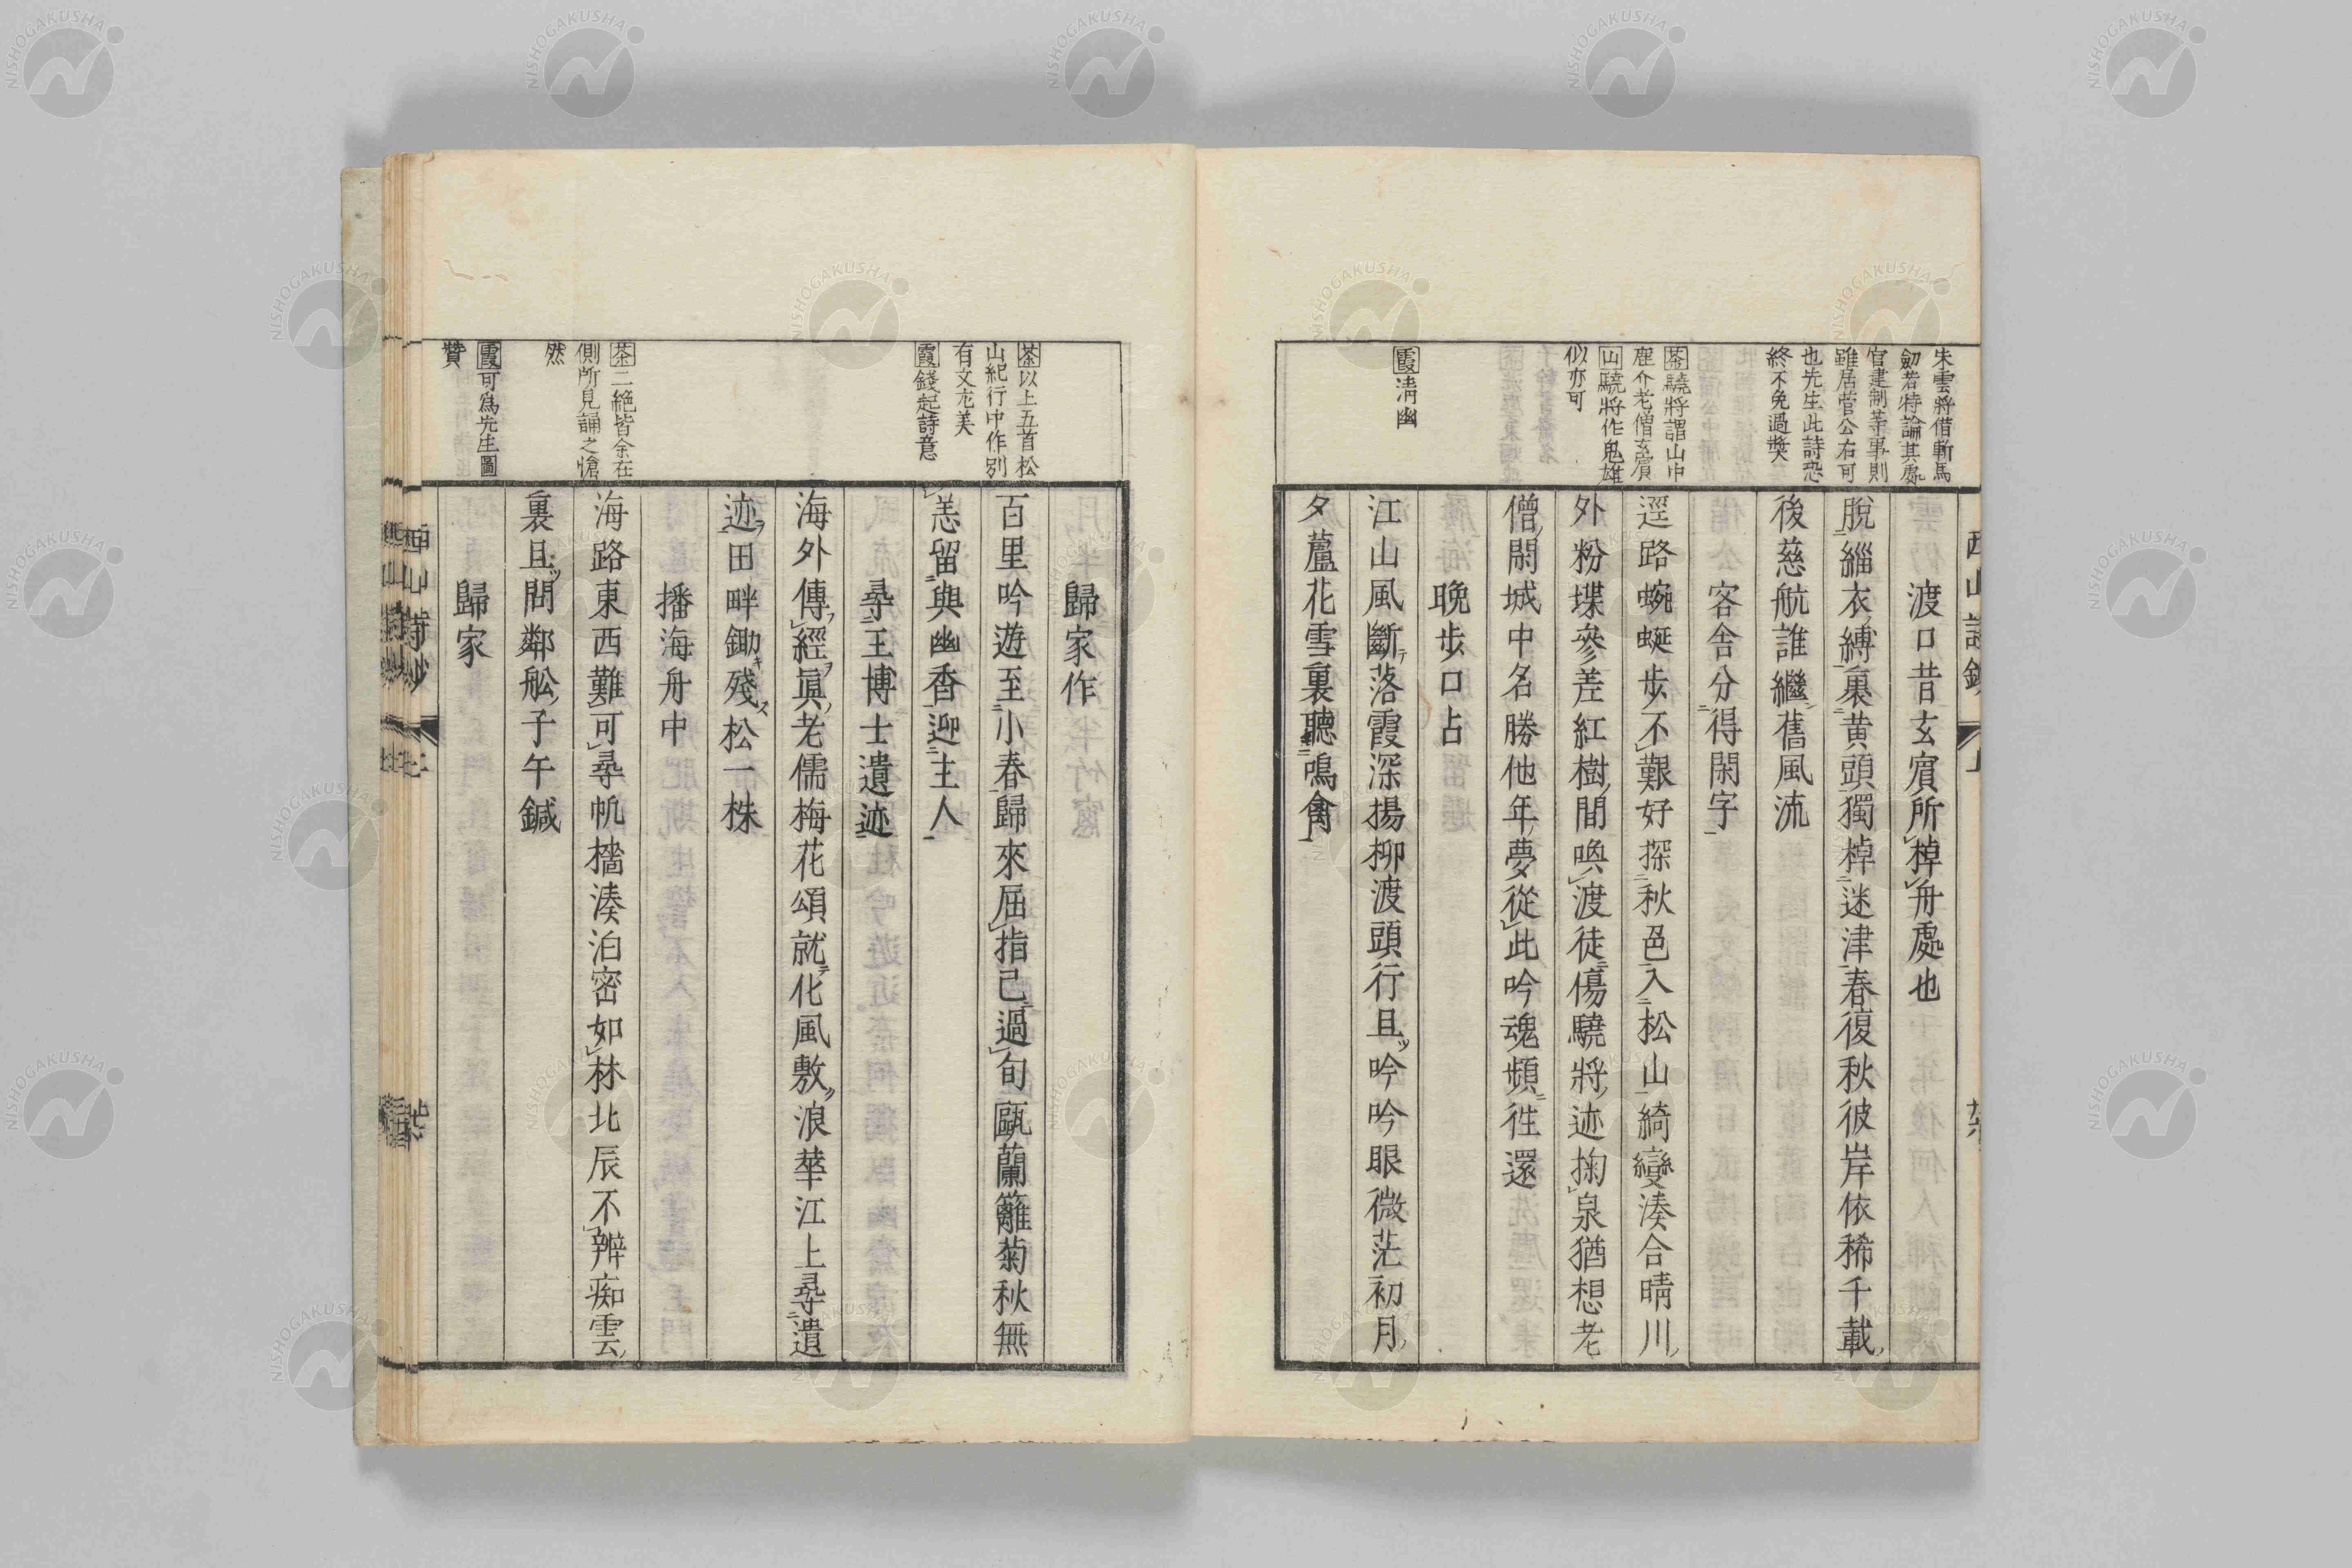 朱雲將借斬馬
劒若特論其處
官建制等事則
雖居菅公右可
也先生此詩恐
終不免過奬
茶驍將謂山中
鹿介老僧玄賓
山驍將作鬼雄
似亦可
霞淸幽
渡口昔玄賓所棹舟處也
脫緇衣縛裹黄頭獨棹迷津春復秋彼岸依稀千載
後慈航誰繼舊風流
客舍分得閑字
逕路蜿蜒步不艱好探秋邑入松山綺變湊合晴川
外粉堞參差紅樹間喚渡徒傷驍將迹掬泉猶想老
僧閑城中名勝他年夢從此吟魂頻徃還
晚步口占
江山風斷落霞深楊柳渡頭行且吟吟眼微茫初月
夕蘆花雪裏聽鳴禽
茶以上五首松
山紀行中作別
有文尤美
霞錢起詩意
茶二絶皆余在
側所見誦之愴
然
霞可爲先生圖
贊
歸家作
百里吟遊至小春歸來屈指已過旬甌蘭籬菊秋無
恙留與幽香迎主人
尋王博士遺迹
海外傳經眞老儒梅花頌就化風敷浪華江上尋遺
迹田畔鋤殘松一株
播海舟中
海路東西難可尋帆檣湊泊密如林北辰不辨痴雲
裏且問鄰舩子午鍼
歸家
西山詩鈔